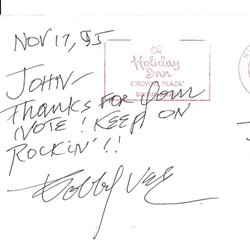 NOV 17, 95
Holiday
Inn
CROWNE PLAZA
JOHN-
THANKS FOR YOUR
NOTE! KEEP ON
ROCKIN'!!
Bobby Vee